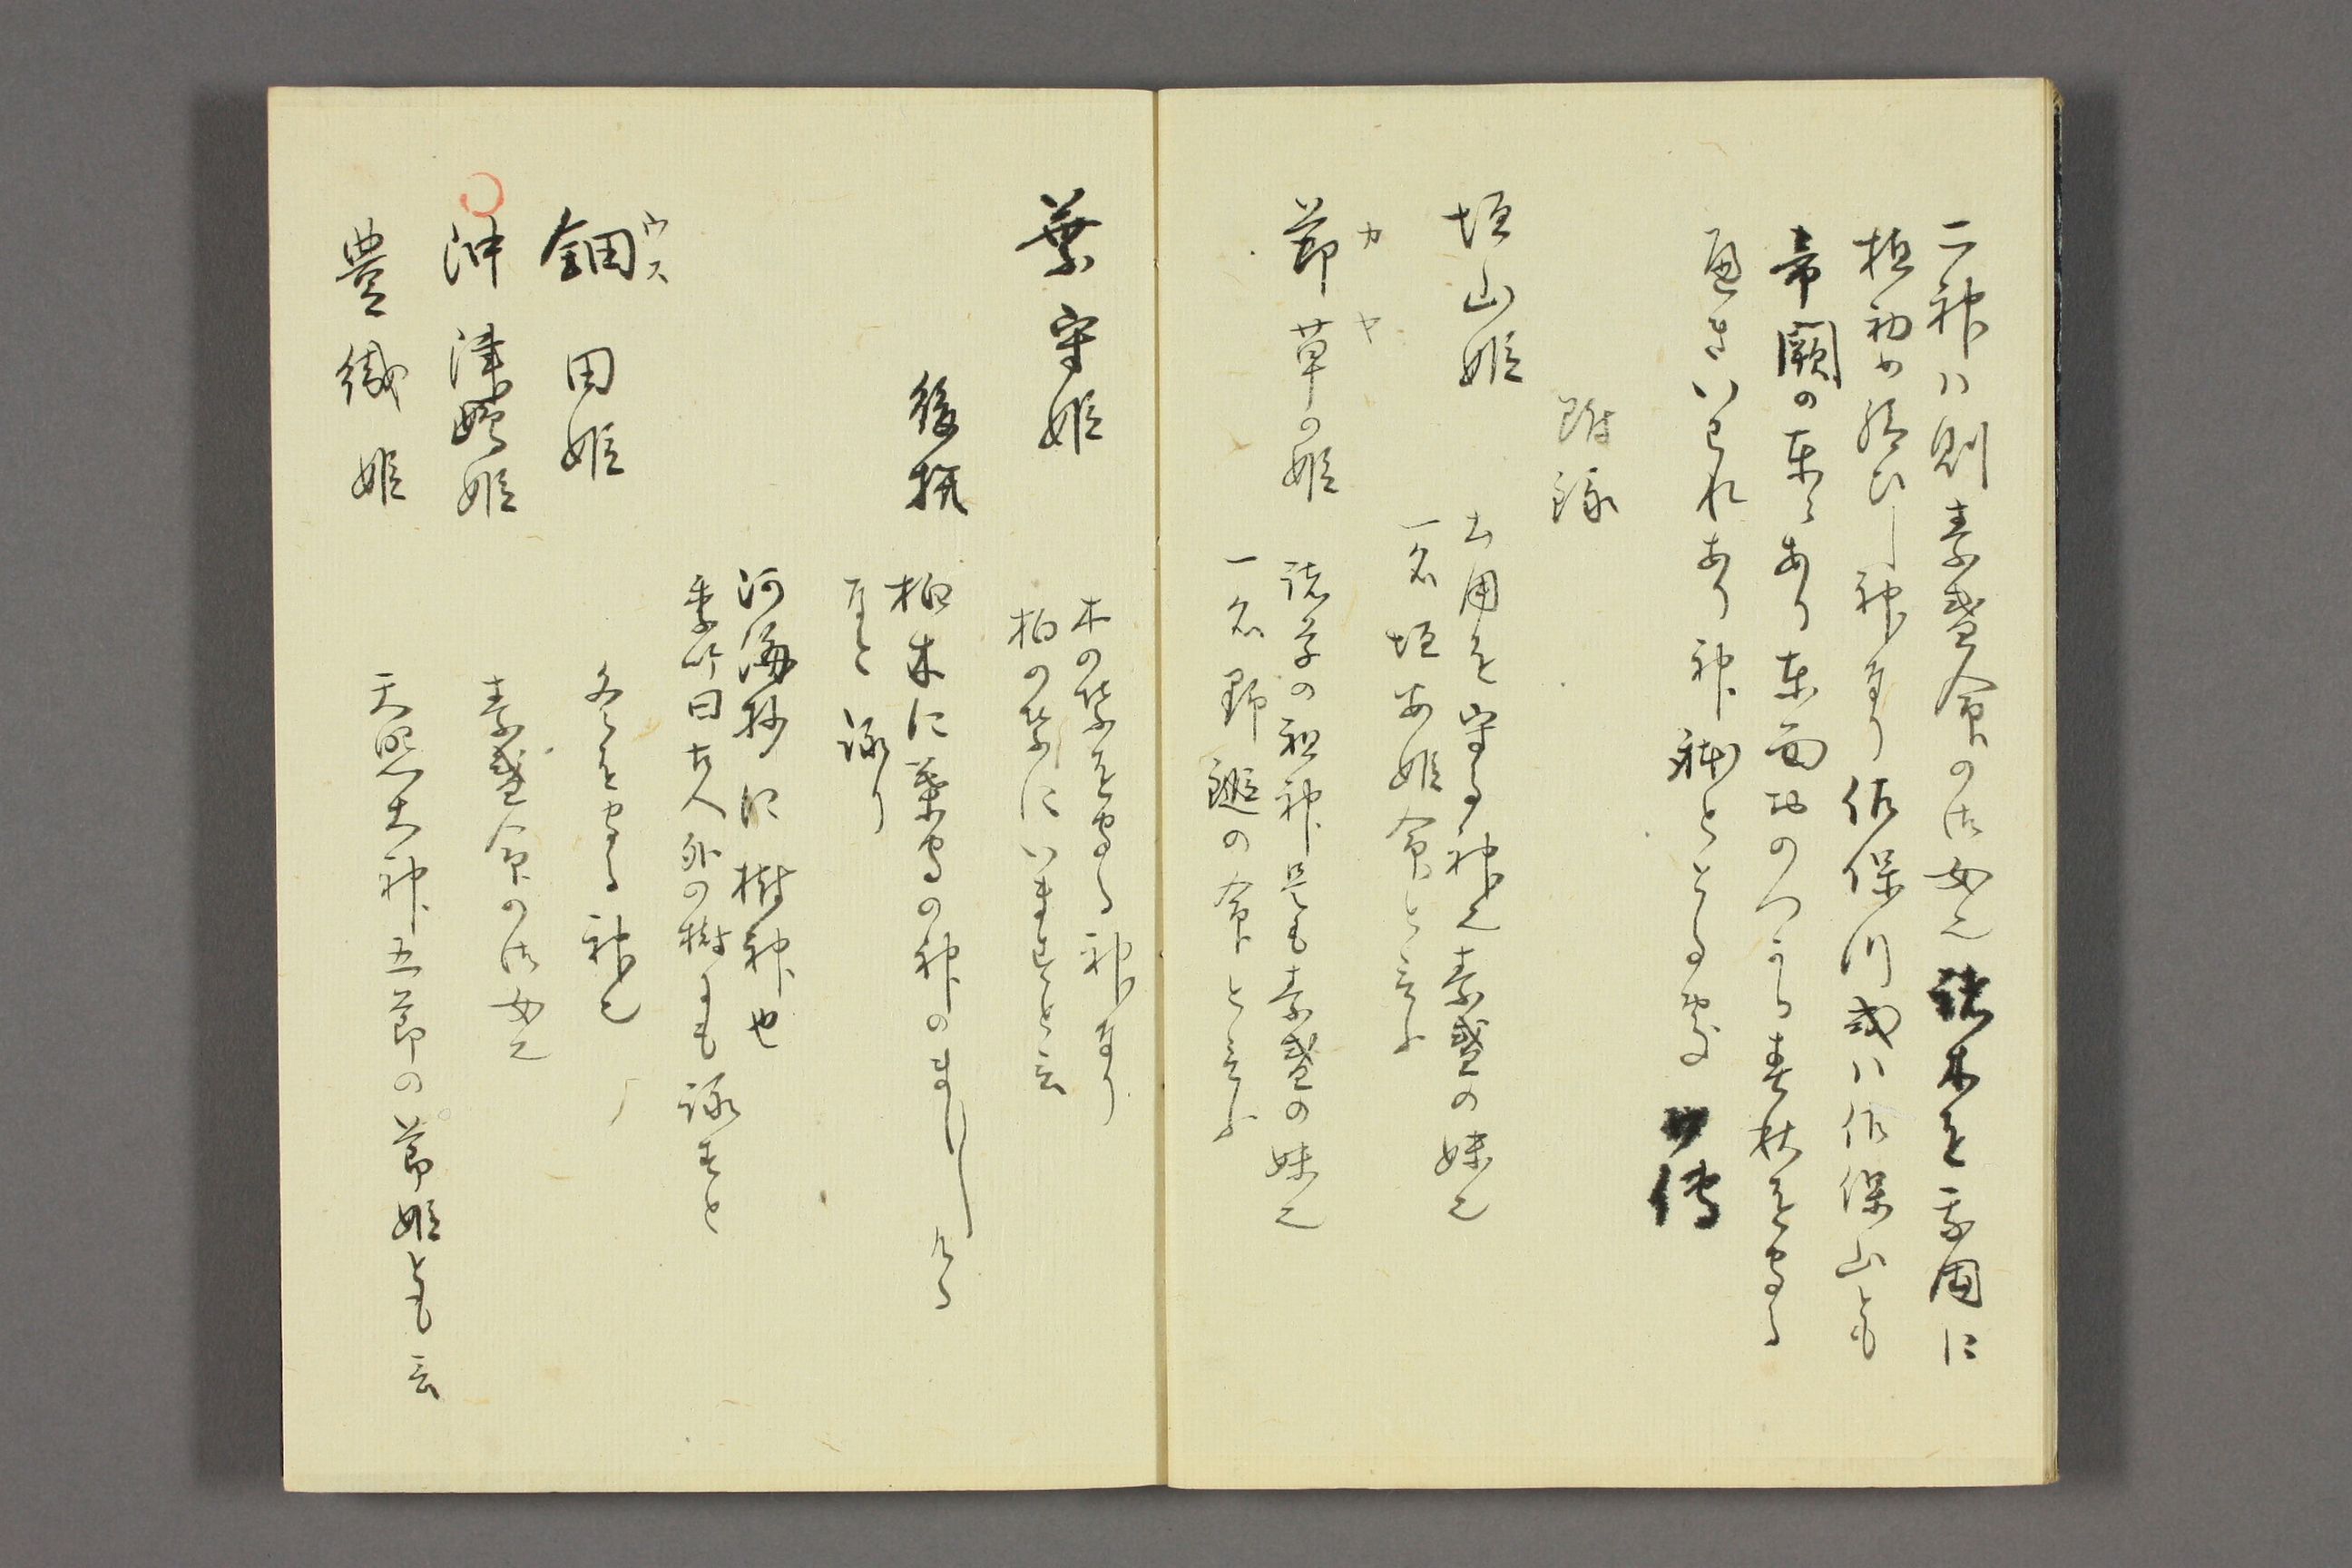 二神ハ則素盞命の御女也諸木を我国に
植初め給ひし神なり佐保川或ハ佐保山とも
帝闕の東にあり東西おのつから春秋を守る
へきいはれあり神秘とする事口傳
附録
埴山姫
土用を守る神也素盞の妹也
一名埴安姫命と云ふ
節草の姫
カヤ
諸草の祖神是も素盞の妹也
一名野鎚の命と云ふ
葉守姫
木の葉を守る神なり
柏の葉にいますと云
後撰
柏木に葉守の神のましける
なと詠り
河海抄に樹神也
季吟曰古人外の樹にも詠すと
鈿田姫
ウス
冬を守る神也
沖津姫
素盞命の御女也
豊織姫
天照大神五節の節姫とも云